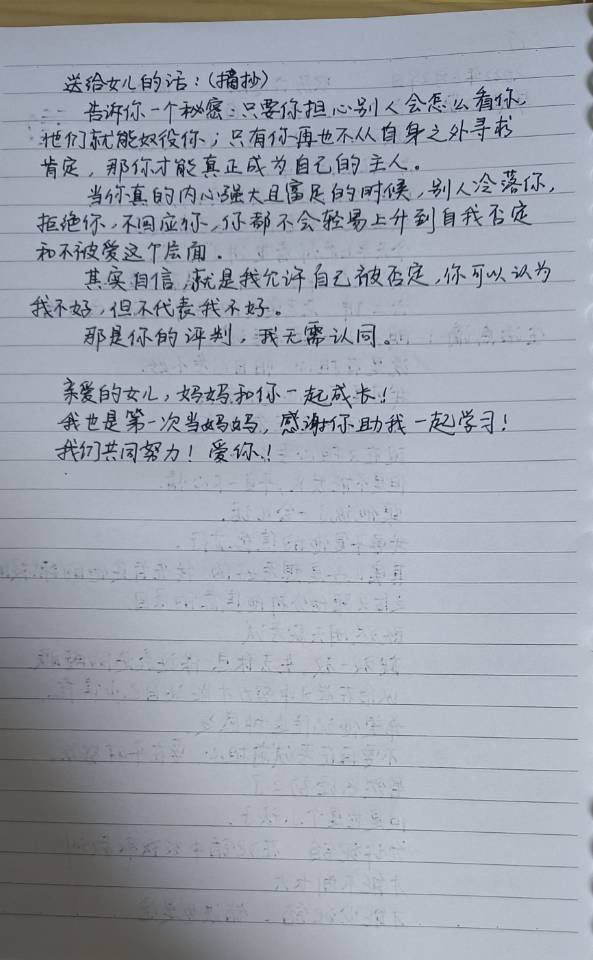 送给女儿的话：(摘抄)
告诉你一个秘密：只要你担心别人会怎么看你，
他们就能奴役你；只有你再也不从自身之外寻求
肯定，那你才能真正成为自己的主人。
当你真的内心强大且富足的时候，别人冷落你，
拒绝你，不回应你，你都不会轻易上升到自我否定
和不被爱这个层面．
其实自信，就是我允许自己被否定，你可以认为
我不好，但不代表我不好。
那是你的评判，我无需认同。
亲爱的女儿，妈妈和你一起成长！
我也是第一次当妈妈，感谢你助我一起学习！
我们共同努力！爱你！